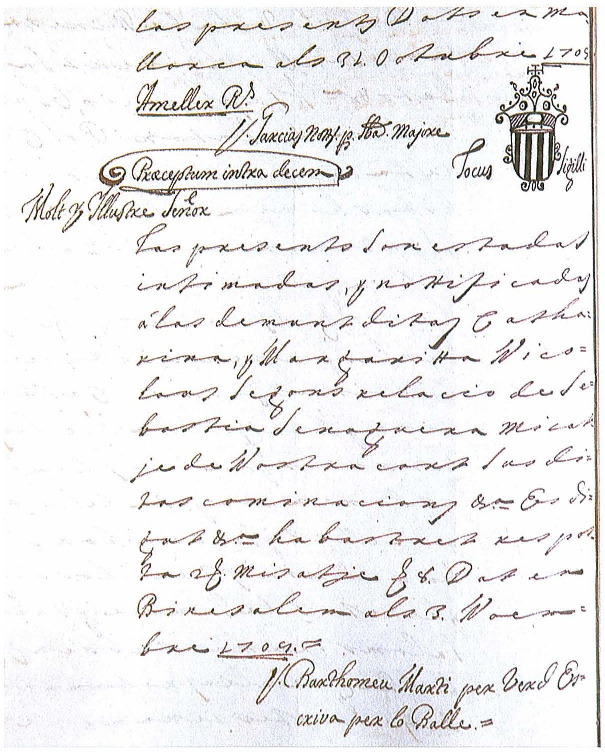 las presents Dats en Ma=
llorca als 31 Octubre 1709
Ameller R.ˢ
V. Tarcias Nott. p. Majore
Præceptum intra decem
Locus Sigilli
Molt Illustre Señor
Las presents son estadas
intimadas, y nottificadas
á las demunt ditas Catha=
rina, y Margaritta Nico=
laus segons relacio de Se=
bastia Senaguera misat=
je de Nostra cort sus di=
tas cominacions &ᵃ Es di=
gat &ᵃ ha bastret respos
ta misatje Dat en
Binesalem als 3. Noem=
bre 1709.=
V. Barthomeu Marti per Verd Es=
criva per lo Balle.=